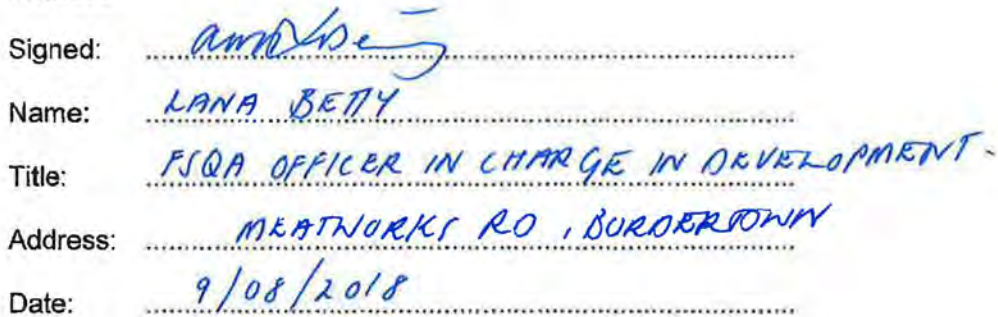 Signed:
Name: LANA BETTY
Title: FSQA OFFICER IN CHARGE IN DEVELOPMENT.
Address: MEATWORKS RD, BORDERTOWN
Date: 9/08/2018